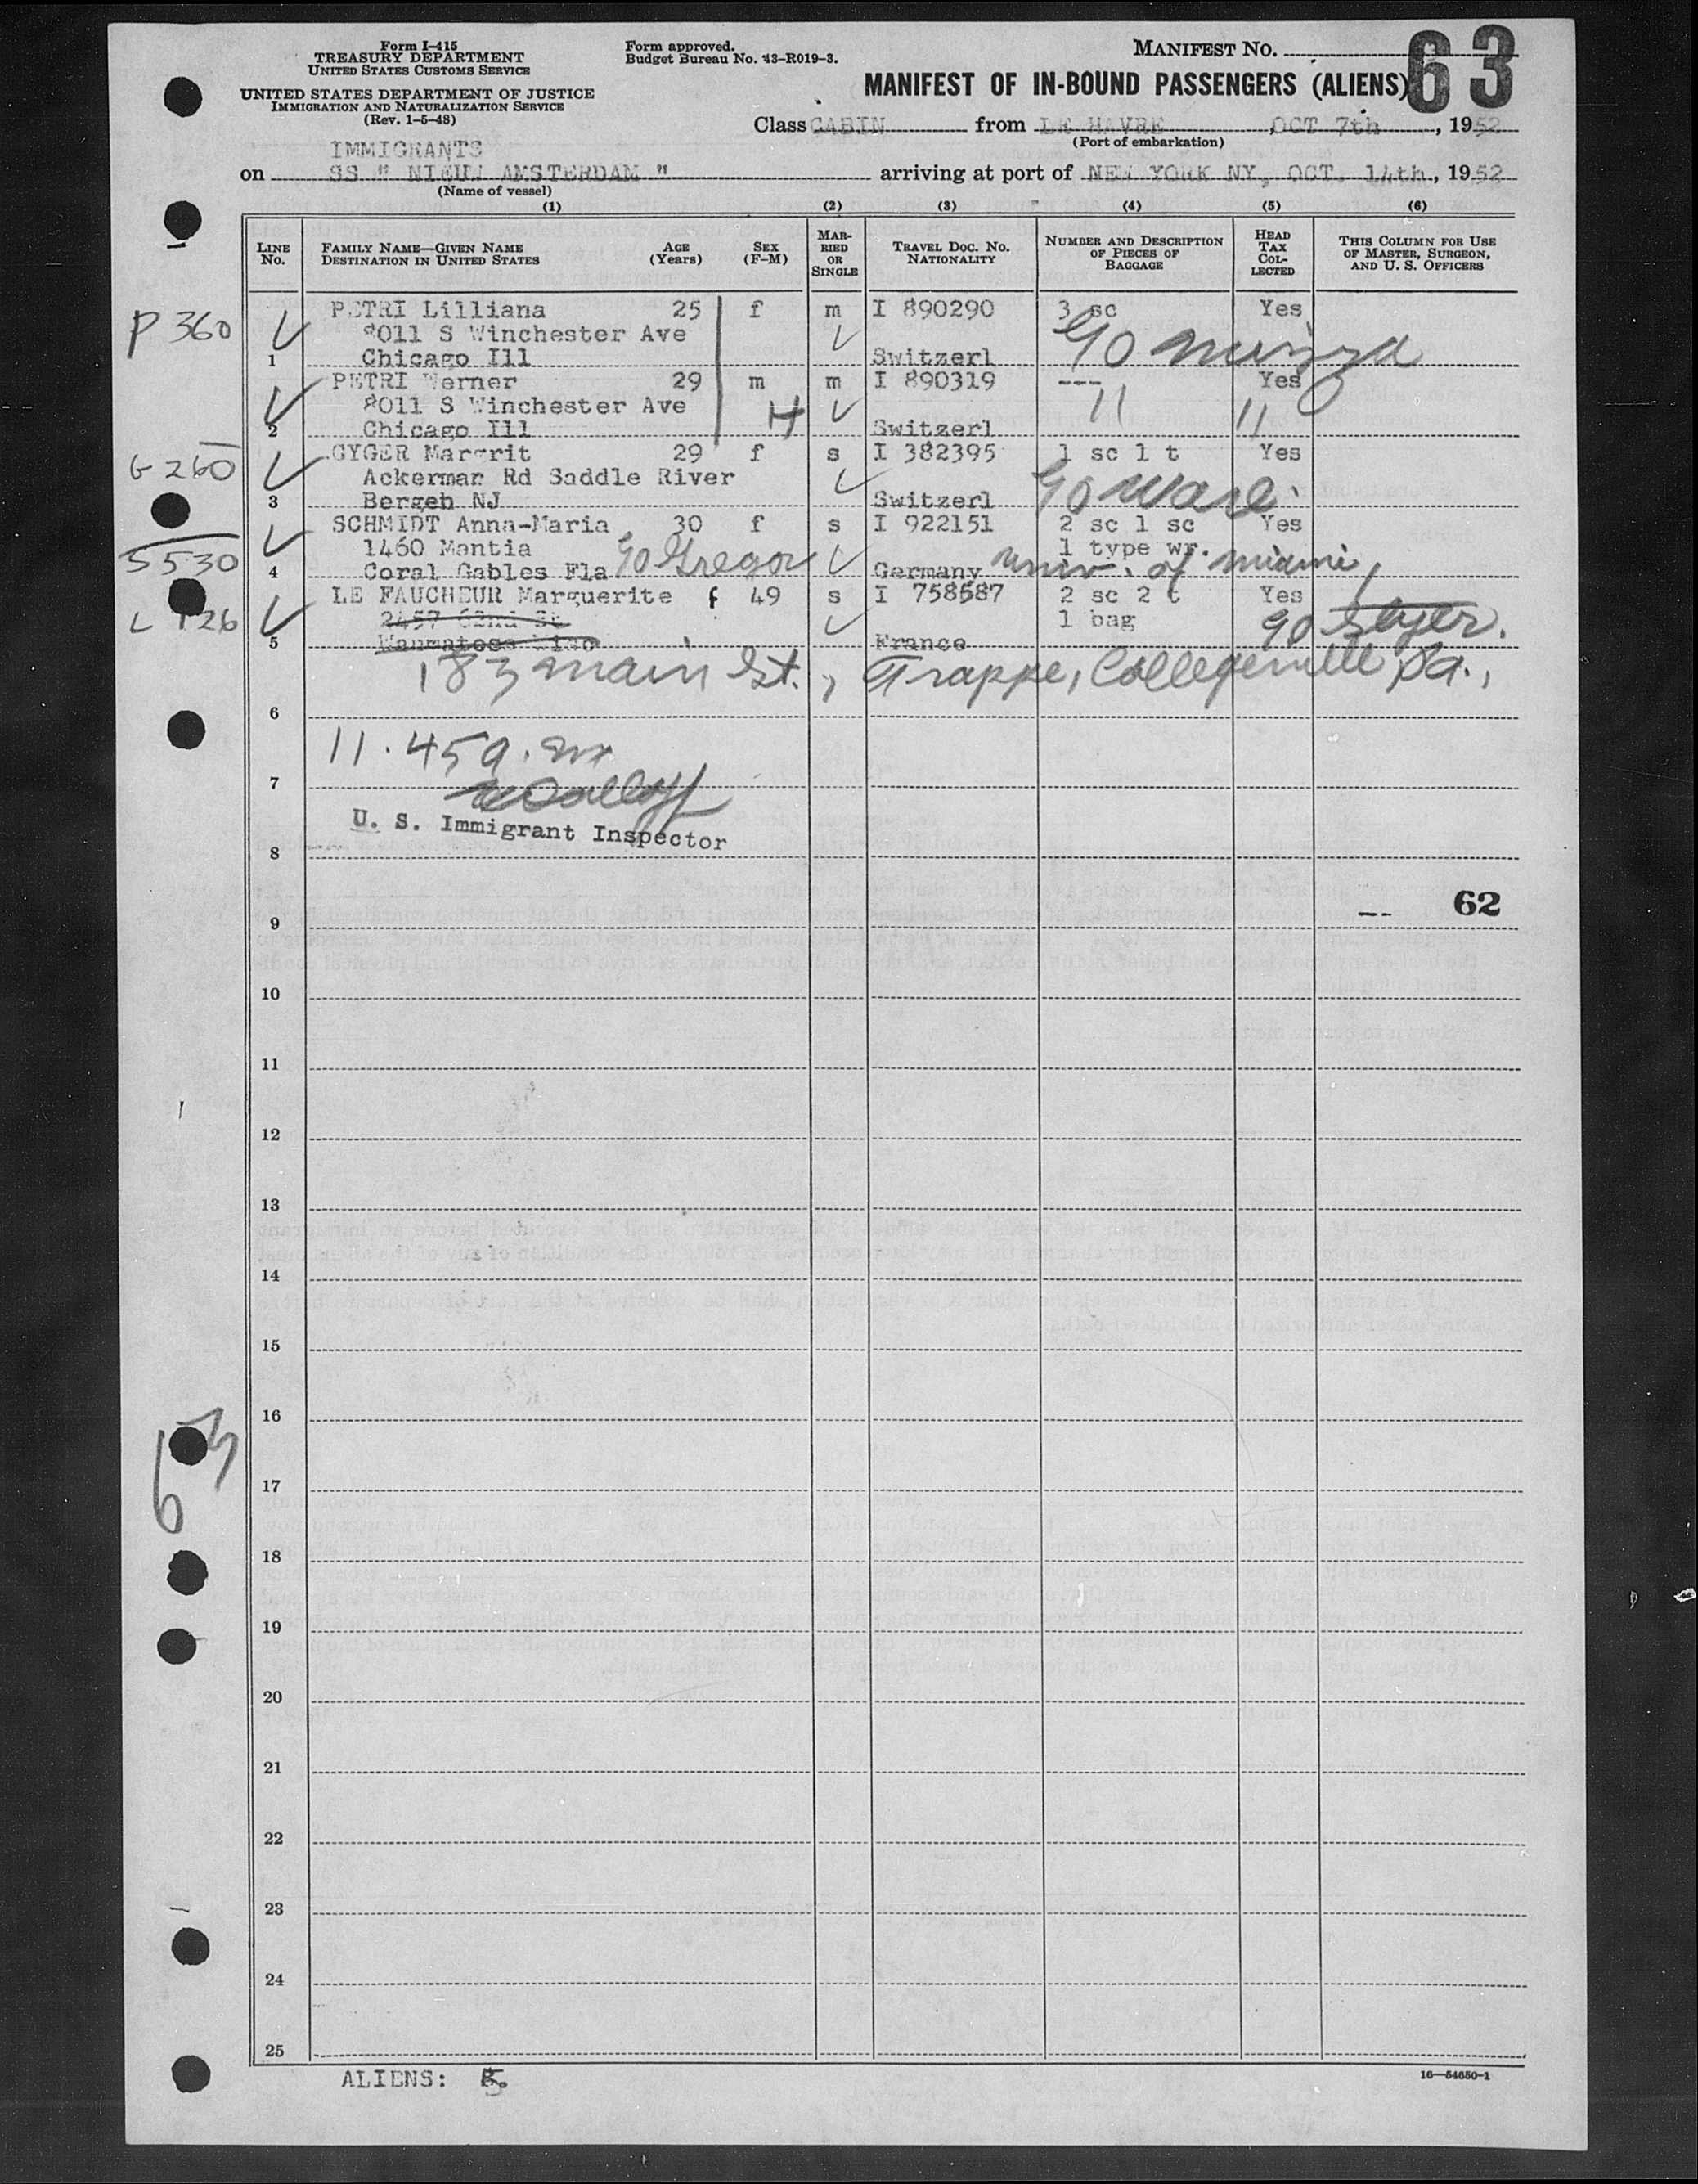 Form I-415
TREASURY DEPARTMENT
UNITED STATES CUSTOMS SERVICE
UNITED STATES DEPARTMENT OF JUSTICE
IMMIGRATION AND NATURALIZATION SERVICE
(Rev. 1-5-48)
Form approved.
Budget Bureau No. 43-R019-3.
MANIFEST NO. 63
MANIFEST OF IN-BOUND PASSENGERS (ALIENS)
Class CABIN from LE HAVRE, OCT 7th, 1952
(Port of embarkation)
IMMIGRANTS
on SS " NIEUW AMSTERDAM " arriving at port of NEW YORK NY, OCT. 14th, 1952
(Name of vessel)
(1) (2) (3) (4) (5) (6)
LINE NO. FAMILY NAME—GIVEN NAME DESTINATION IN UNITED STATES AGE (Years) SEX (F-M) MARRIED OR SINGLE TRAVEL DOC. NO. NATIONALITY NUMBER AND DESCRIPTION OF PIECES OF BAGGAGE HEAD TAX COLLECTED THIS COLUMN FOR USE OF MASTER, SURGEON, AND U. S. OFFICERS
P 360 PETRI Lilliana 25 f m I 890290 3 sc Yes
8011 S Winchester Ave
1 Chicago Ill Switzerl
PETRI Werner 29 m m I 890319 --- Yes
8011 S Winchester Ave H 11 11
2 Chicago Ill Switzerl
G 260 GYGER Margrit 29 f s I 382395 1 sc 1 t Yes
Ackerman Rd Saddle River
3 Bergen NJ Switzerl c/o Ware
SCHMIDT Anna-Maria 30 f s I 922151 2 sc 1 sc Yes
S 530 1460 Mantia 1 type wr.
4 Coral Gables Fla c/o Gregor Germany Univ. of Miami
LE FAUCHEUR Marguerite f 49 s I 758587 2 sc 2 t Yes
L 126 2457 62nd St 1 bag
5 France c/o
183 Main St., Trappe, Collegeville Pa.,
6
11.45 a.m
7
U. S. Immigrant Inspector
8
-- 62
9
10
11
12
13
14
15
16
63
17
18
19
20
21
22
23
24
25
ALIENS: 5.
16—54650-1